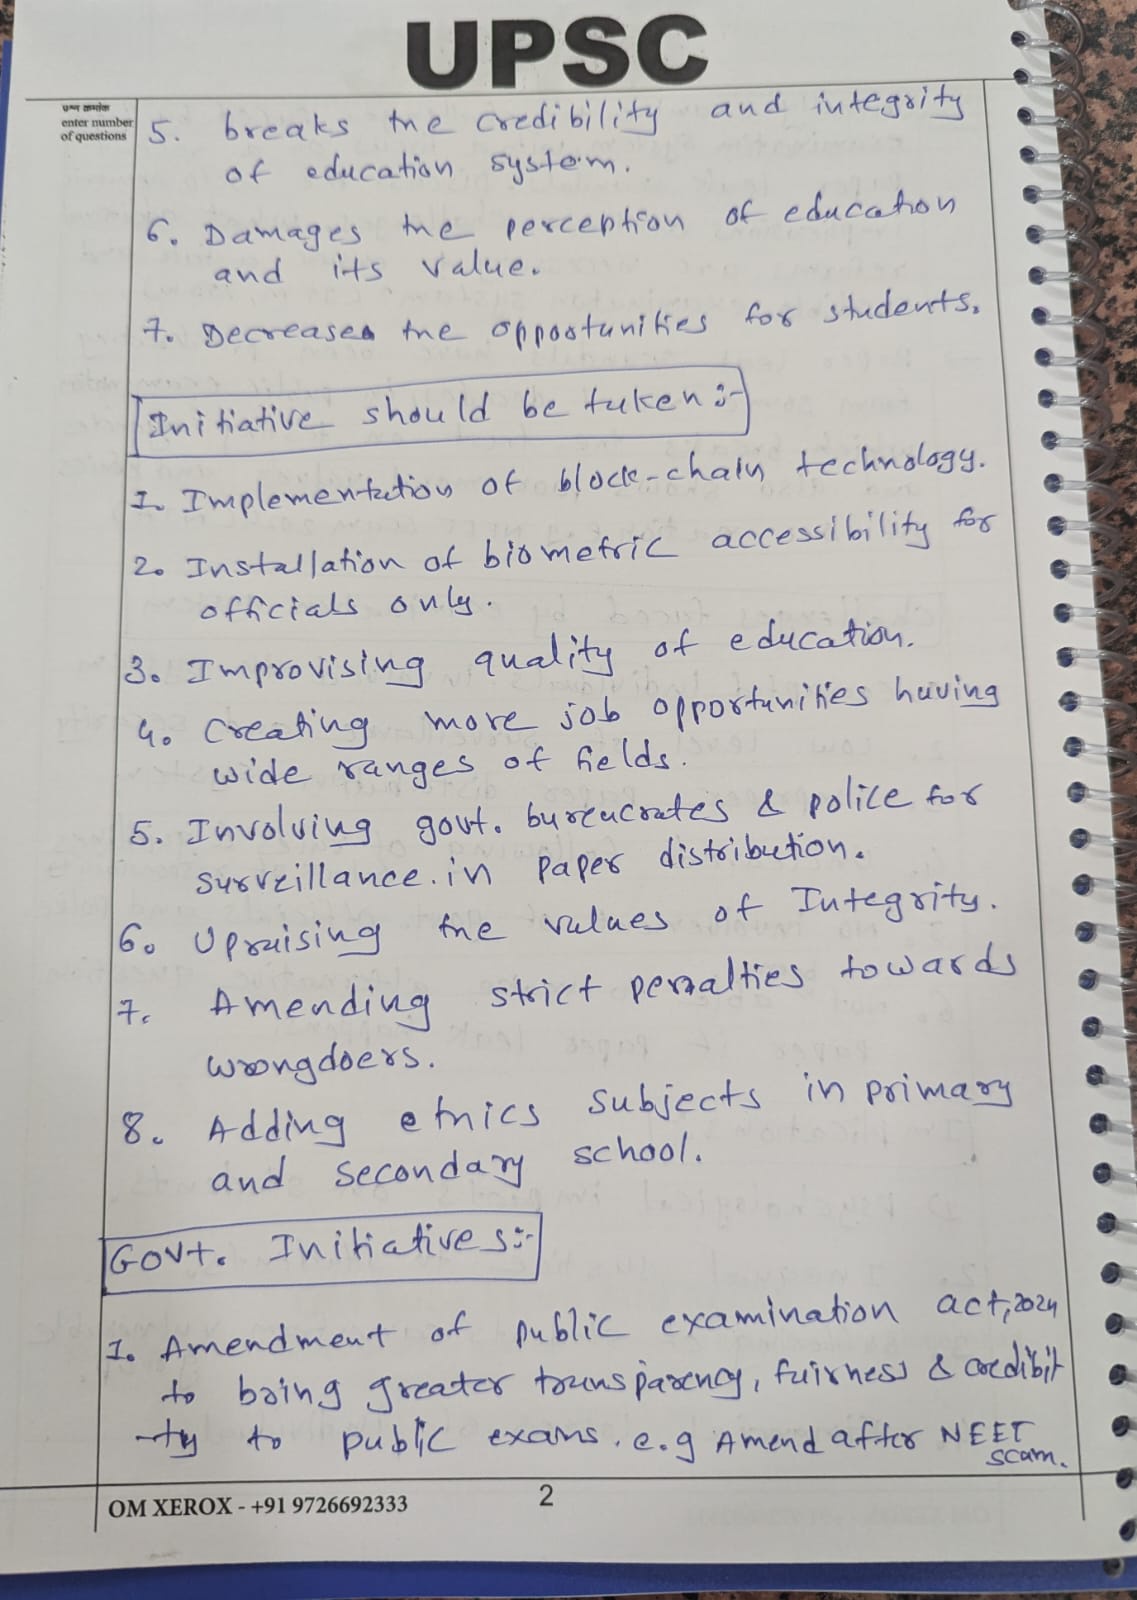 UPSC
प्रश्न क्रमांक
enter number
of questions
5. breaks the credibility and integrity
of education system.
6. Damages the perception of education
and its value.
7. Decreases the opportunities for students.
Initiative should be taken :-
1. Implementation of block-chain technology.
2. Installation of biometric accessibility for
officials only.
3. Improvising quality of education.
4. Creating more job opportunities having
wide ranges of fields.
5. Involving govt. bureucrates & police for
surveillance. in paper distribution.
6. Upraising the values of Integrity.
7. Amending strict penalties towards
wrongdoers.
8. Adding ethics subjects in primary
and secondary school.
Govt. Initiatives :-
1. Amendment of public examination act, 2024
to bring greater transparency, fairness & credibit
-ty to public exams. e.g Amend after NEET
scam.
OM XEROX - +91 9726692333
2